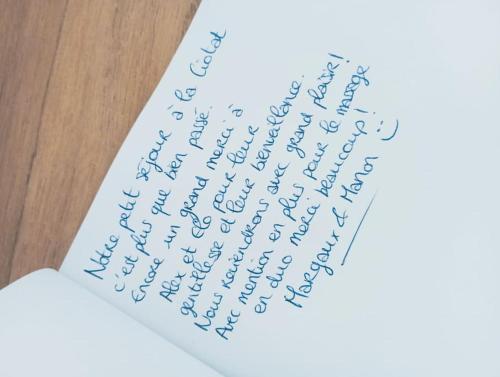 Notre petit séjour à la Ciotat
c'est plus que bien passé.
Encore un grand merci à
Alex et Elo pour leur
gentillesse et leur bienveillance.
Nous reviendrons avec grand plaisir!
Avec mention en plus pour le massage
en duo merci beaucoup!
Margaux & Manon :)